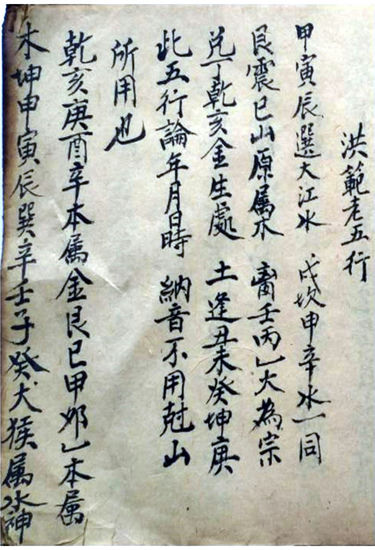 洪範老五行
甲寅辰選大江水 戊坎申辛水一同
艮震巳山原属木 离壬丙乚火為宗
兑丁乾亥金生處 土逢丑未癸坤庚
此五行論年月日時 納音不用尅山
所用也
乾亥庚酉辛本属金艮巳甲邜乚本属
木坤申寅辰巽辛壬子癸犬猴属水神